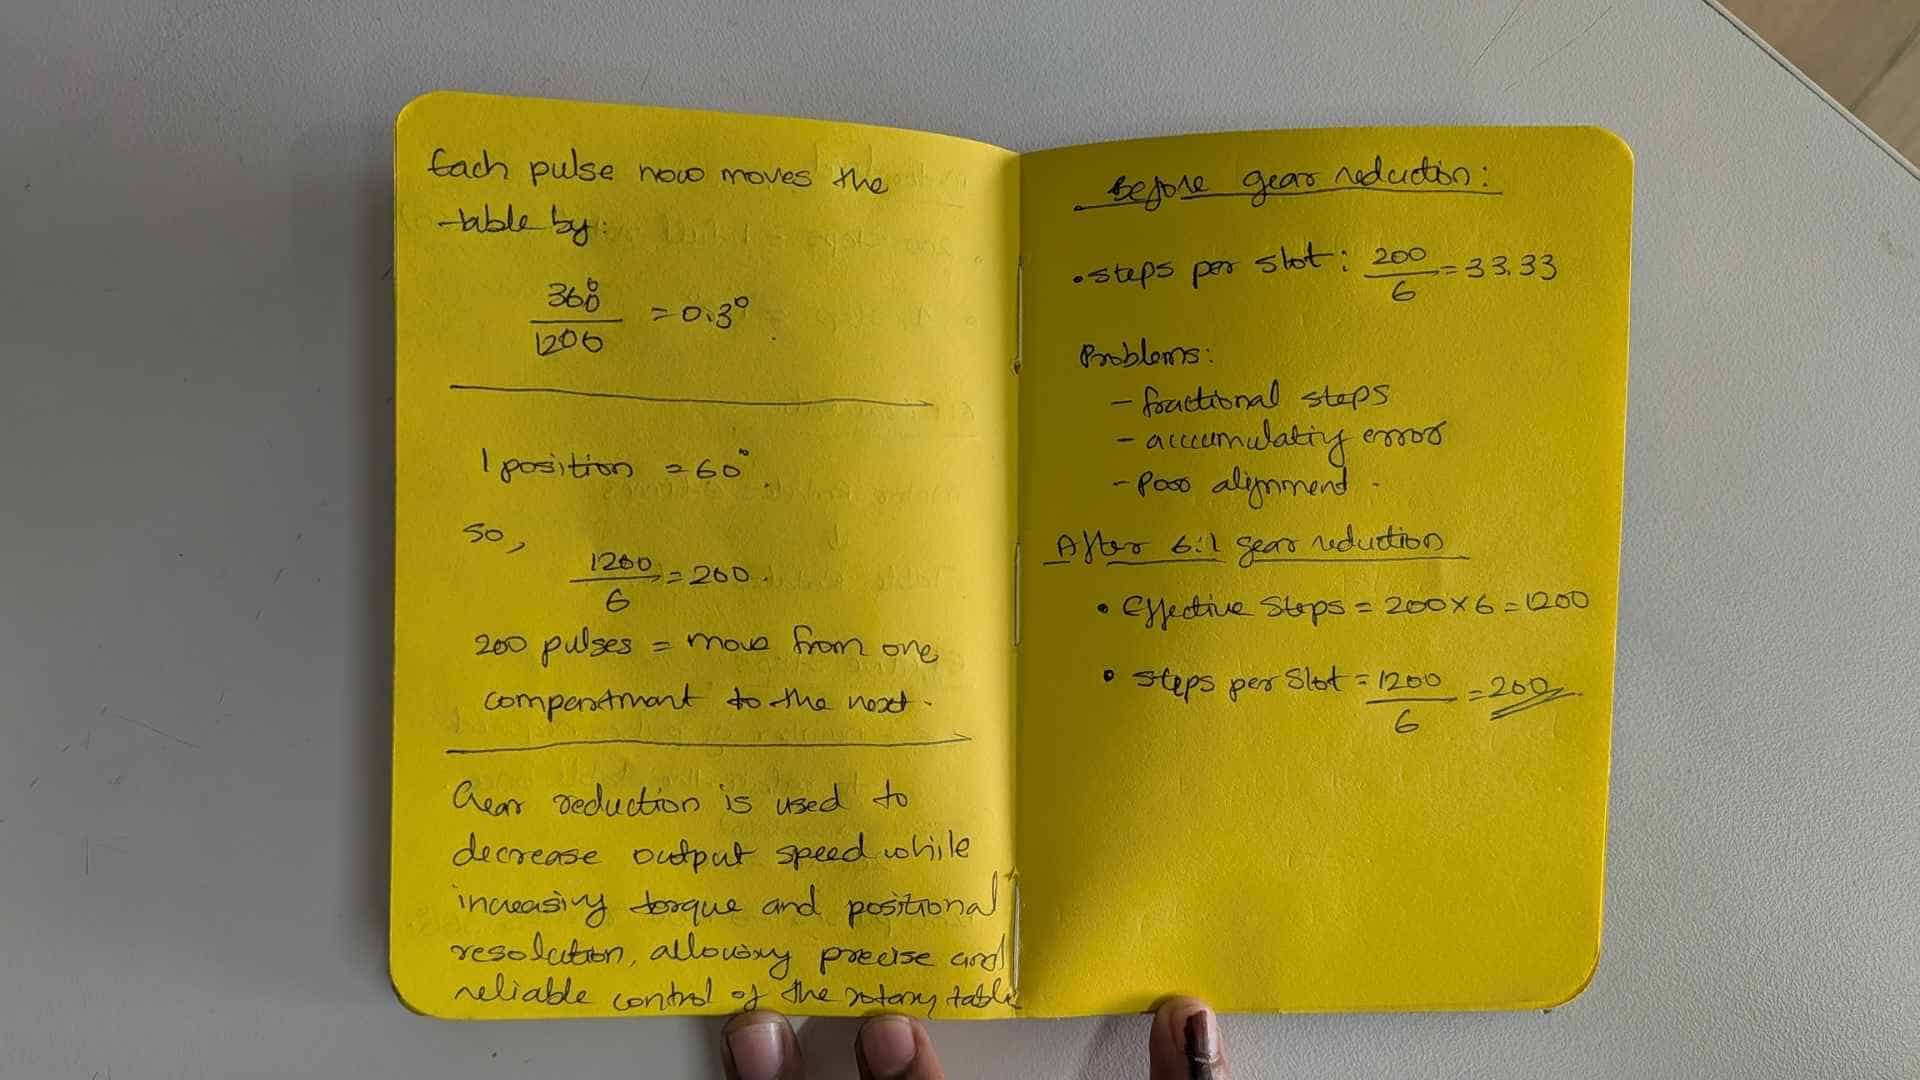 Each pulse now moves the
table by:
360°
1200
= 0.3°
1 position = 60°.
so,
1200
6
= 200.
200 pulses = move from one
compartment to the next.
Gear reduction is used to
decrease output speed while
increasing torque and positional
resolution, allowing precise and
reliable control of the rotary table
Before gear reduction:
• steps per slot: 200/6 = 33.33
Problems:
- fractional steps
- accumulating error
- Poor alignment.
After 6:1 gear reduction
• Effective Steps = 200 × 6 = 1200
• Steps per Slot = 1200/6 = 200